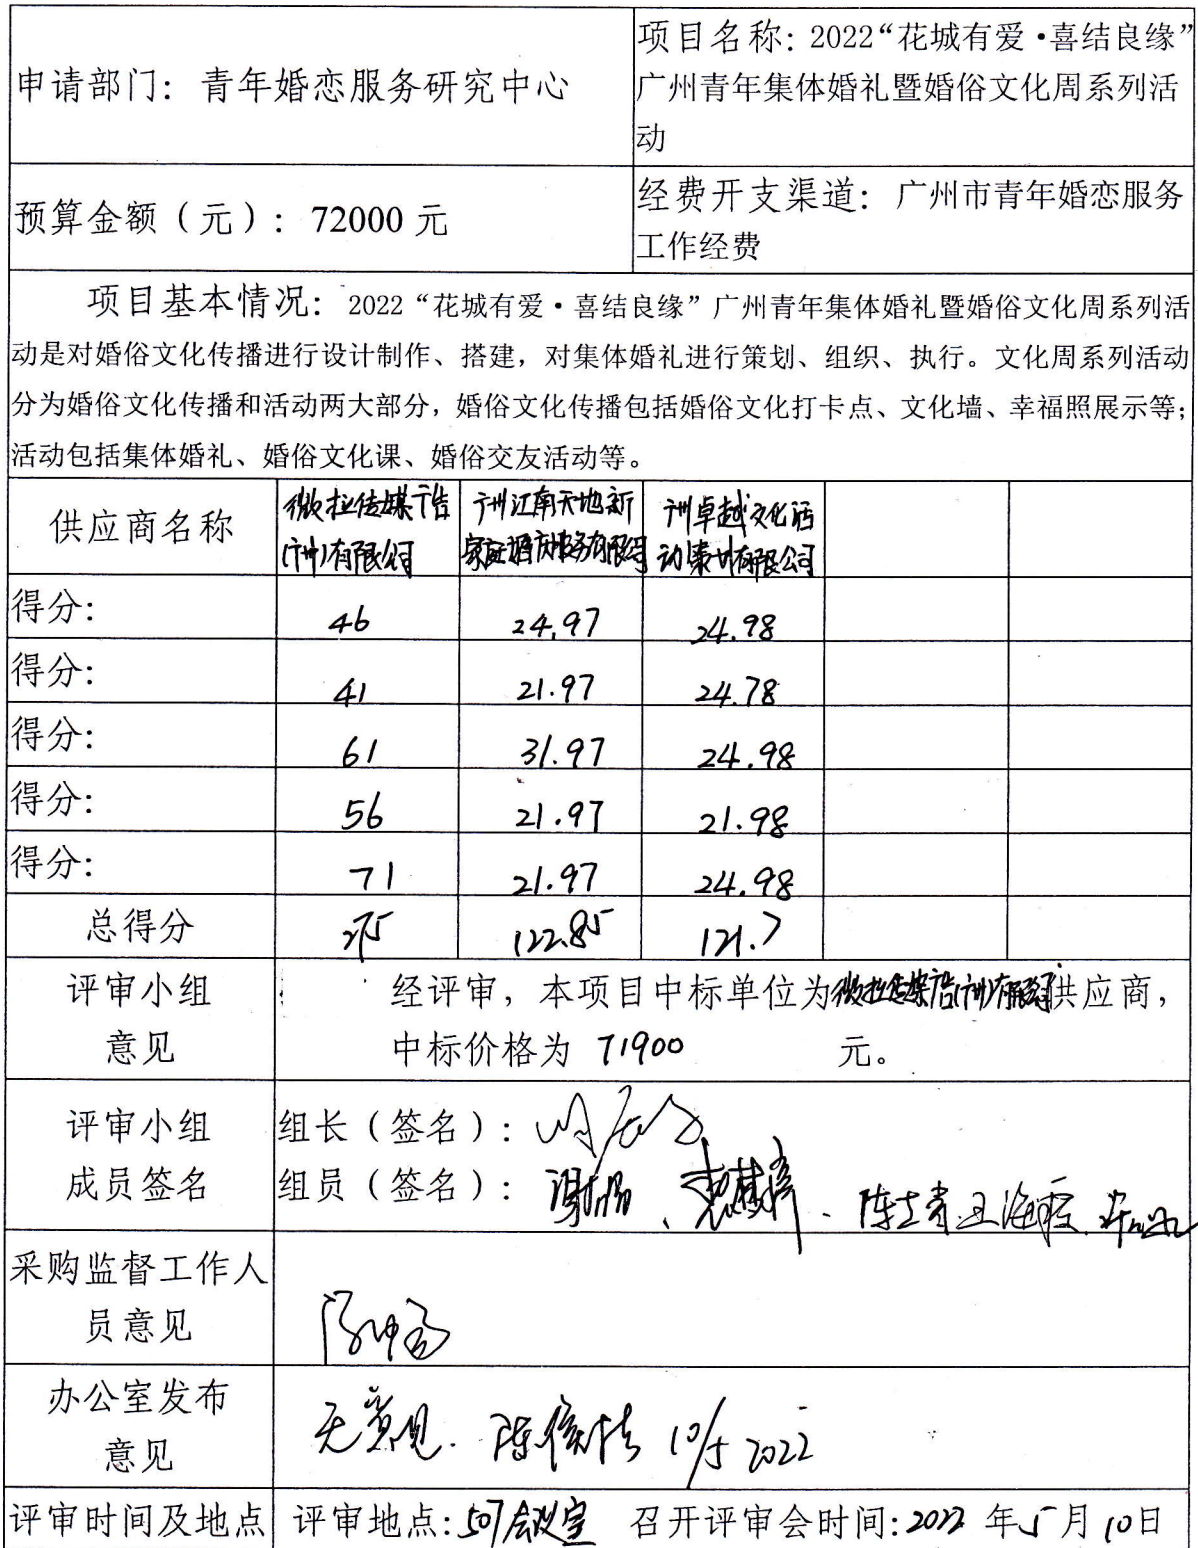 申请部门：青年婚恋服务研究中心
项目名称：2022“花城有爱·喜结良缘”
广州青年集体婚礼暨婚俗文化周系列活
动
预算金额（元）：72000 元
经费开支渠道：广州市青年婚恋服务
工作经费
项目基本情况：2022“花城有爱·喜结良缘”广州青年集体婚礼暨婚俗文化周系列活
动是对婚俗文化传播进行设计制作、搭建，对集体婚礼进行策划、组织、执行。文化周系列活动
分为婚俗文化传播和活动两大部分，婚俗文化传播包括婚俗文化打卡点、文化墙、幸福照展示等；
活动包括集体婚礼、婚俗文化课、婚俗交友活动等。
供应商名称
微拉传媒广告
(广州)有限公司
广州江南天地新
家庭婚庆服务有限公司
广州卓越文化活
动策划有限公司
得分： 46 24.97 24.98
得分： 41 21.97 24.78
得分： 61 31.97 24.98
得分： 56 21.97 21.98
得分： 71 21.97 24.98
总得分 275 122.85 121.7
评审小组
意见
经评审，本项目中标单位为微拉传媒广告(广州)有限公司供应商，
中标价格为 71900 元。
评审小组
成员签名
组长（签名）：
组员（签名）： 陈立青 王海霞
采购监督工作人
员意见
办公室发布
意见
无意见. 10/5 2022
评审时间及地点
评审地点：507会议室 召开评审会时间：2022 年 5 月 10 日